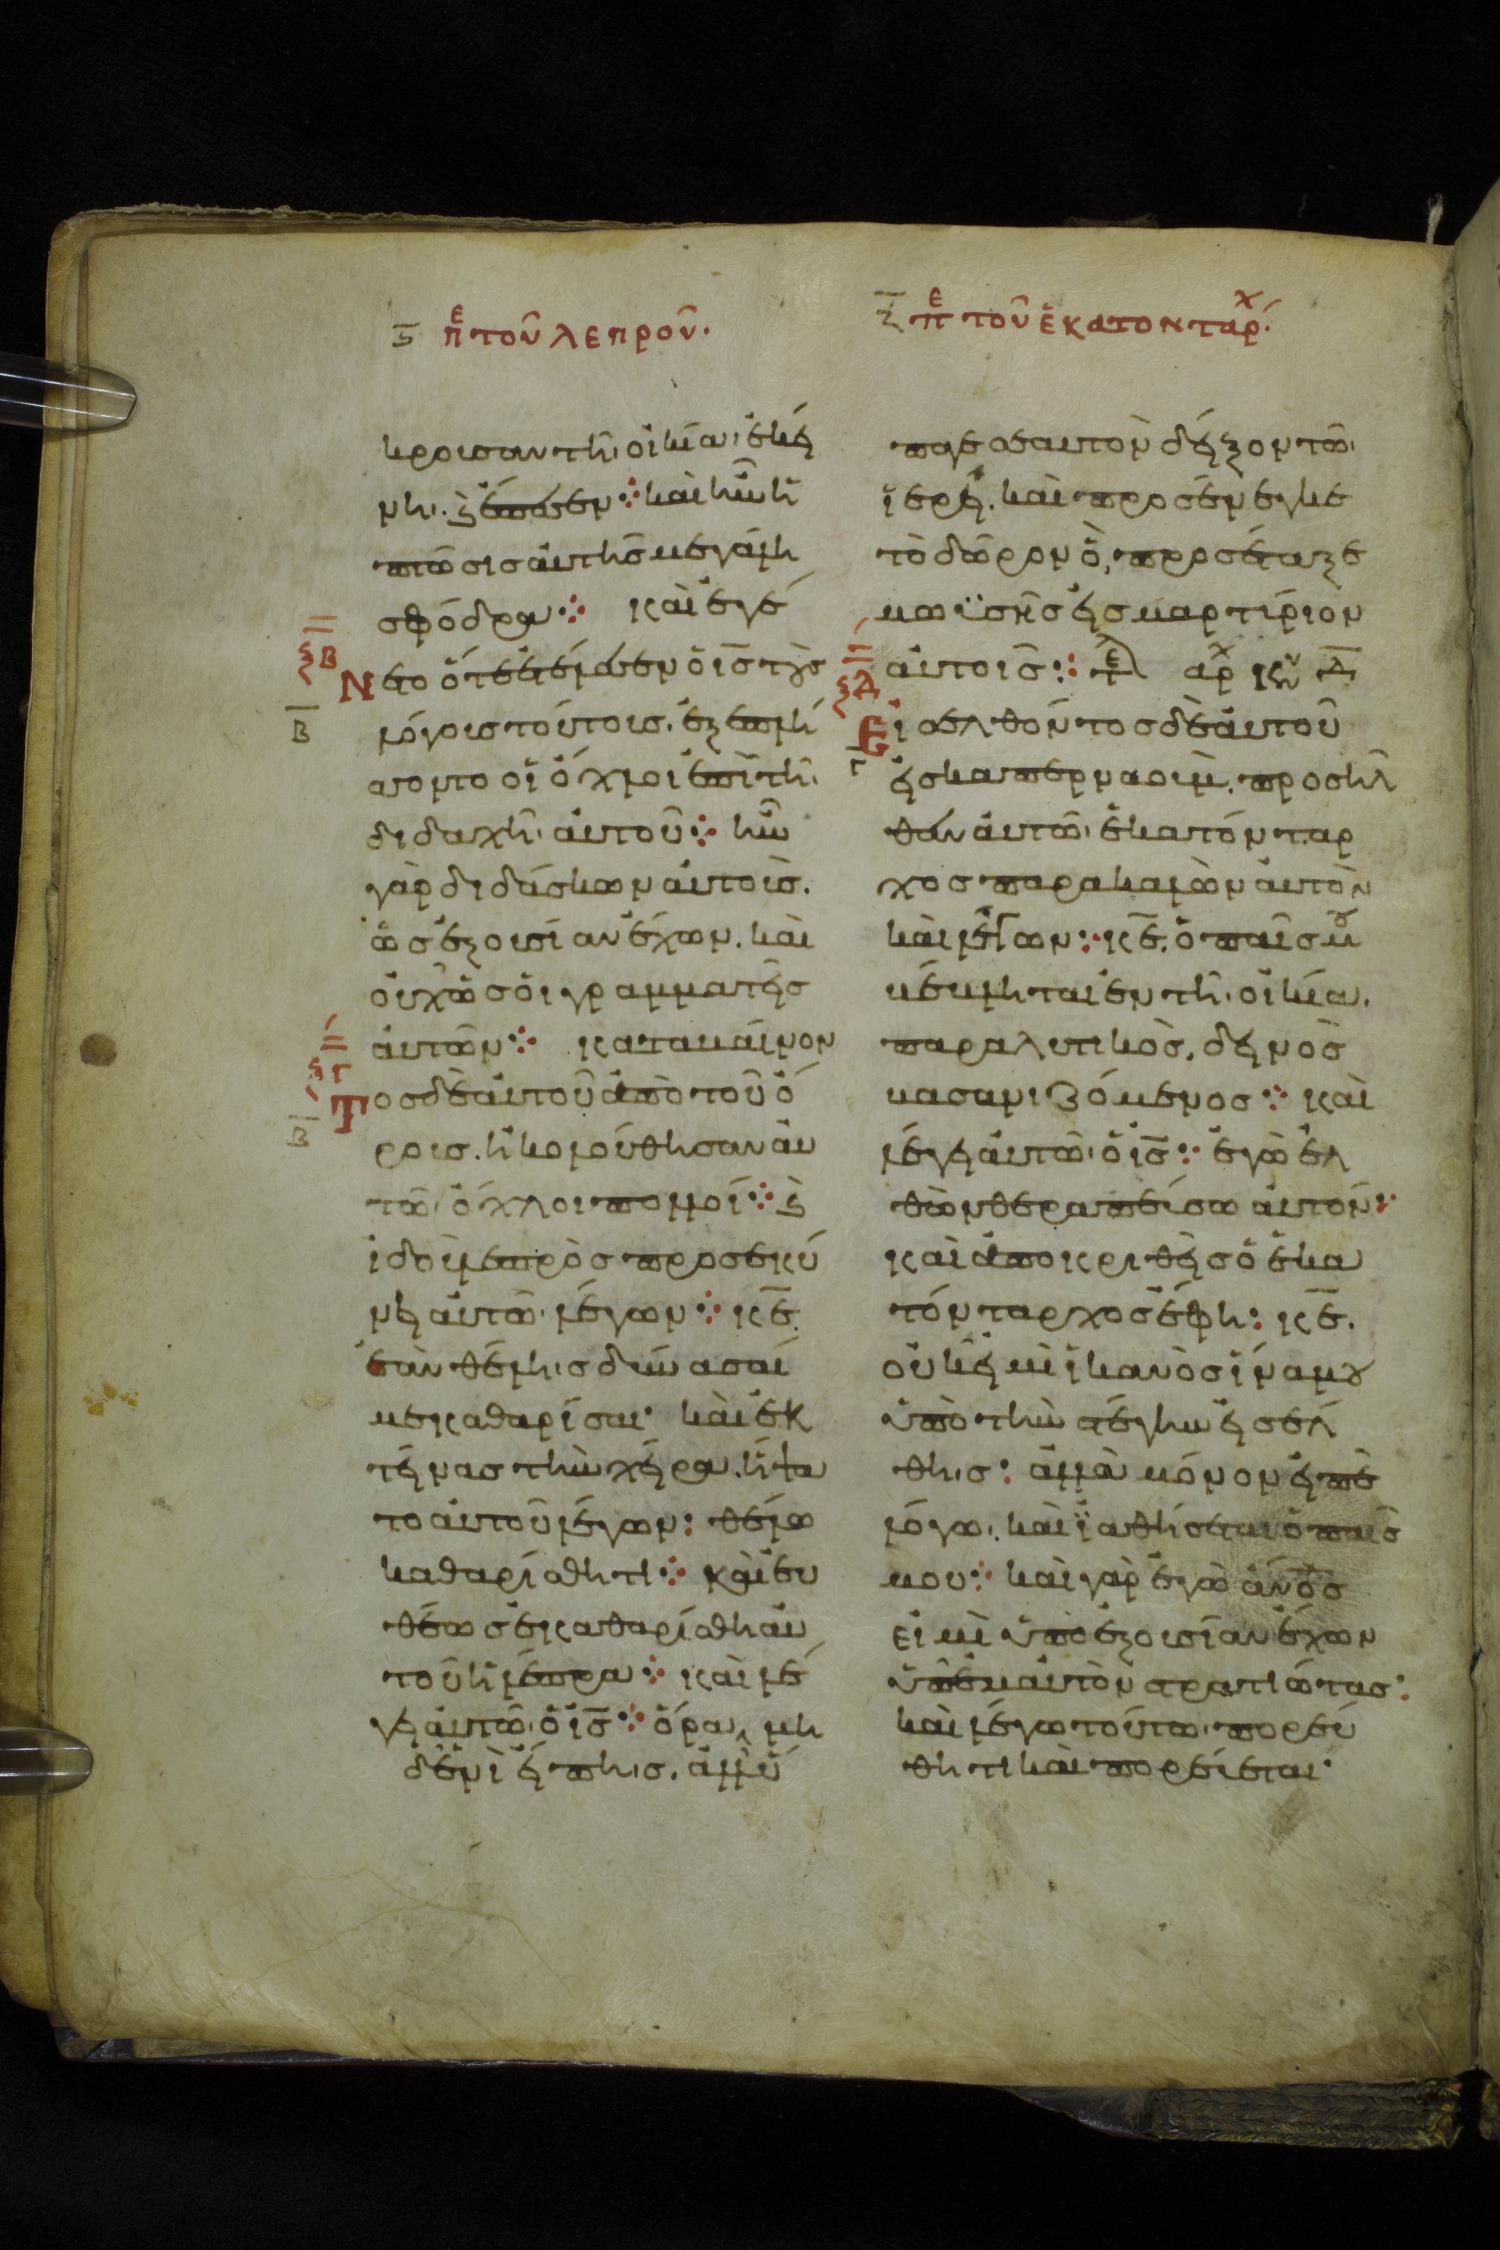 ϛ πε τοῦ λεπροῦ.
κρουσαν τῆ οἰκία ἐκεί
νη. καὶ ἔπεσεν· καὶ ἦν ἡ
πτῶσις αὐτῆς μεγάλη
σφόδρα· καὶ ἐγέ
ξβ
νετο ὅτε ἐτέλεσεν ὁ ις τοὺς
β
λόγους τούτους. ἐξεπλή
σσοντο οἱ ὄχλοι ἐπὶ τῆ
διδαχῆ αὐτοῦ· ἦν
γὰρ διδάσκων αὐτοὺς.
ὡς ἐξουσίαν ἔχων. καὶ
οὐχ ὡς οἱ γραμματεῖς
αὐτῶν· καταβάντον
ξγ
τος δὲ αὐτοῦ ἀπὸ τοῦ ὄ
β
ρους. ἠκολούθησαν αὐ
τῶ ὄχλοι πολλοί· καὶ
ἰδοὺ λεπρὸς προσεκύ
νει αὐτῶ λέγων· κε
ἐὰν θέλης δύνασαί
με καθαρίσαι· καὶ ἐκ
τείνας τὴν χείρα. ἥψα
το αὐτοῦ λέγων: θέλω
καθαρίσθητι· καὶ εὐ
θέως ἐκαθαρίσθη αὐ
τοῦ ἡ λέπρα· καὶ λέ
γει αὐτῶ ὁ ις· ὅρα, μη
δενὶ εἴπης. ἀλλ' ὕ
ζ πε τοῦ ἑκατονταρχ
παγε σεαυτὸν δεῖξον τῶ
ἱερεῖ. καὶ προσένεγκε
τὸ δῶρον ὃ, προσέταξε
μωϋσῆς εἰς μαρτύριον
αὐτοῖς· τελ αρχ κυ δ
ξδ
εἰσελθόντος δὲ αὐτοῦ
γ
εἰς καπερναούμ. προσῆλ
θεν αὐτῶ ἑκατόνταρ
χος παρακαλῶν αὐτὸν
καὶ λέγων· κε. ὁ παῖς μου
βέβληται ἐν τῆ οἰκία.
παραλυτικὸς, δεινῶς
βασανιζόμενος· καὶ
λέγει αὐτῶ ὁ ις· ἐγὼ ἐλ
θὼν θεραπεύσω αὐτόν·
καὶ ἀποκριθεὶς ὁ ἑκα
τόνταρχος ἔφη: κε.
οὐκ εἰμὶ ἱκανὸς ἵνα μου
ὑπὸ τὴν στέγην εἰσέλ
θης: ἀλλὰ μόνον εἰπὲ
λόγω. καὶ ἰαθήσεται ὁ παῖς
μου· καὶ γὰρ ἐγὼ ἀνος
εἰμὶ ὑπὸ ἐξουσίαν ἔχων
ὑπ' ἐμαυτὸν στρατιώτας:
καὶ λέγω τούτω πορεύ
θητι καὶ πορεύεται·